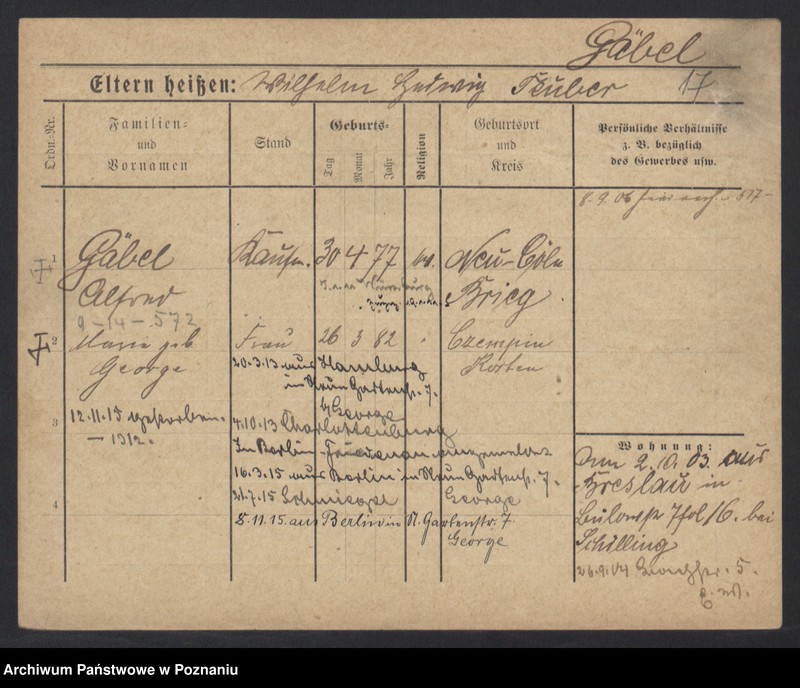 Gäbel
Eltern heißen: Wilhelm Hedwig Teuber 17
Ordn.-Nr.
Familien-
und
Vornamen
Stand
Geburts-
Tag
Monat
Jahr
Religion
Geburtsort
und
Kreis
Persönliche Verhältnisse
z. B. bezüglich
des Gewerbes usw.
8.9.06 517-
1
Gäbel Kaufm. 30 4 77 Neu-Cöln
Alfred Brieg
9-14-572
2
Marie geb Frau 26 3 82 " Czempin
George Kosten
20.3.13 aus Hamburg
in Gartenstr. 7.
b/George
3
12.11.15 gestorben
-1312.
4.10.13 Charlottenburg
In Berlin-Friedenau angemeldet
16.3.15 aus Berlin in Gartenstr. 7.
4
21.7.15 George
8.11.15 aus Berlin in N. Gartenstr. 7
George
Wohnung:
2. 03. aus
Breslau in
16. bei
Schilling
26.9.04 5.
Archiwum Państwowe w Poznaniu